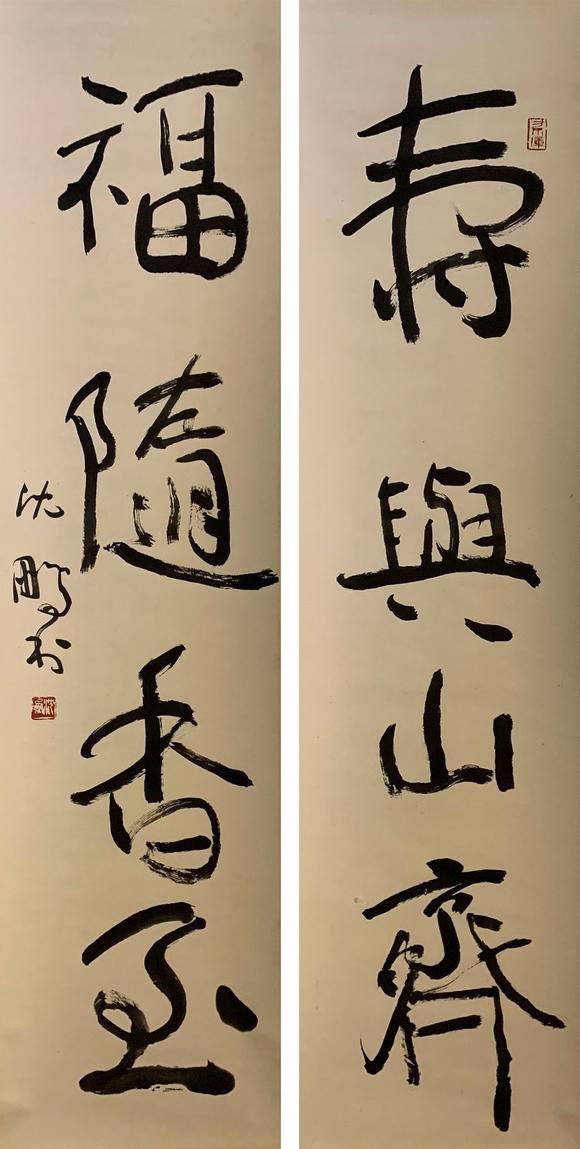 壽與山齊
福隨香至
沈鵬